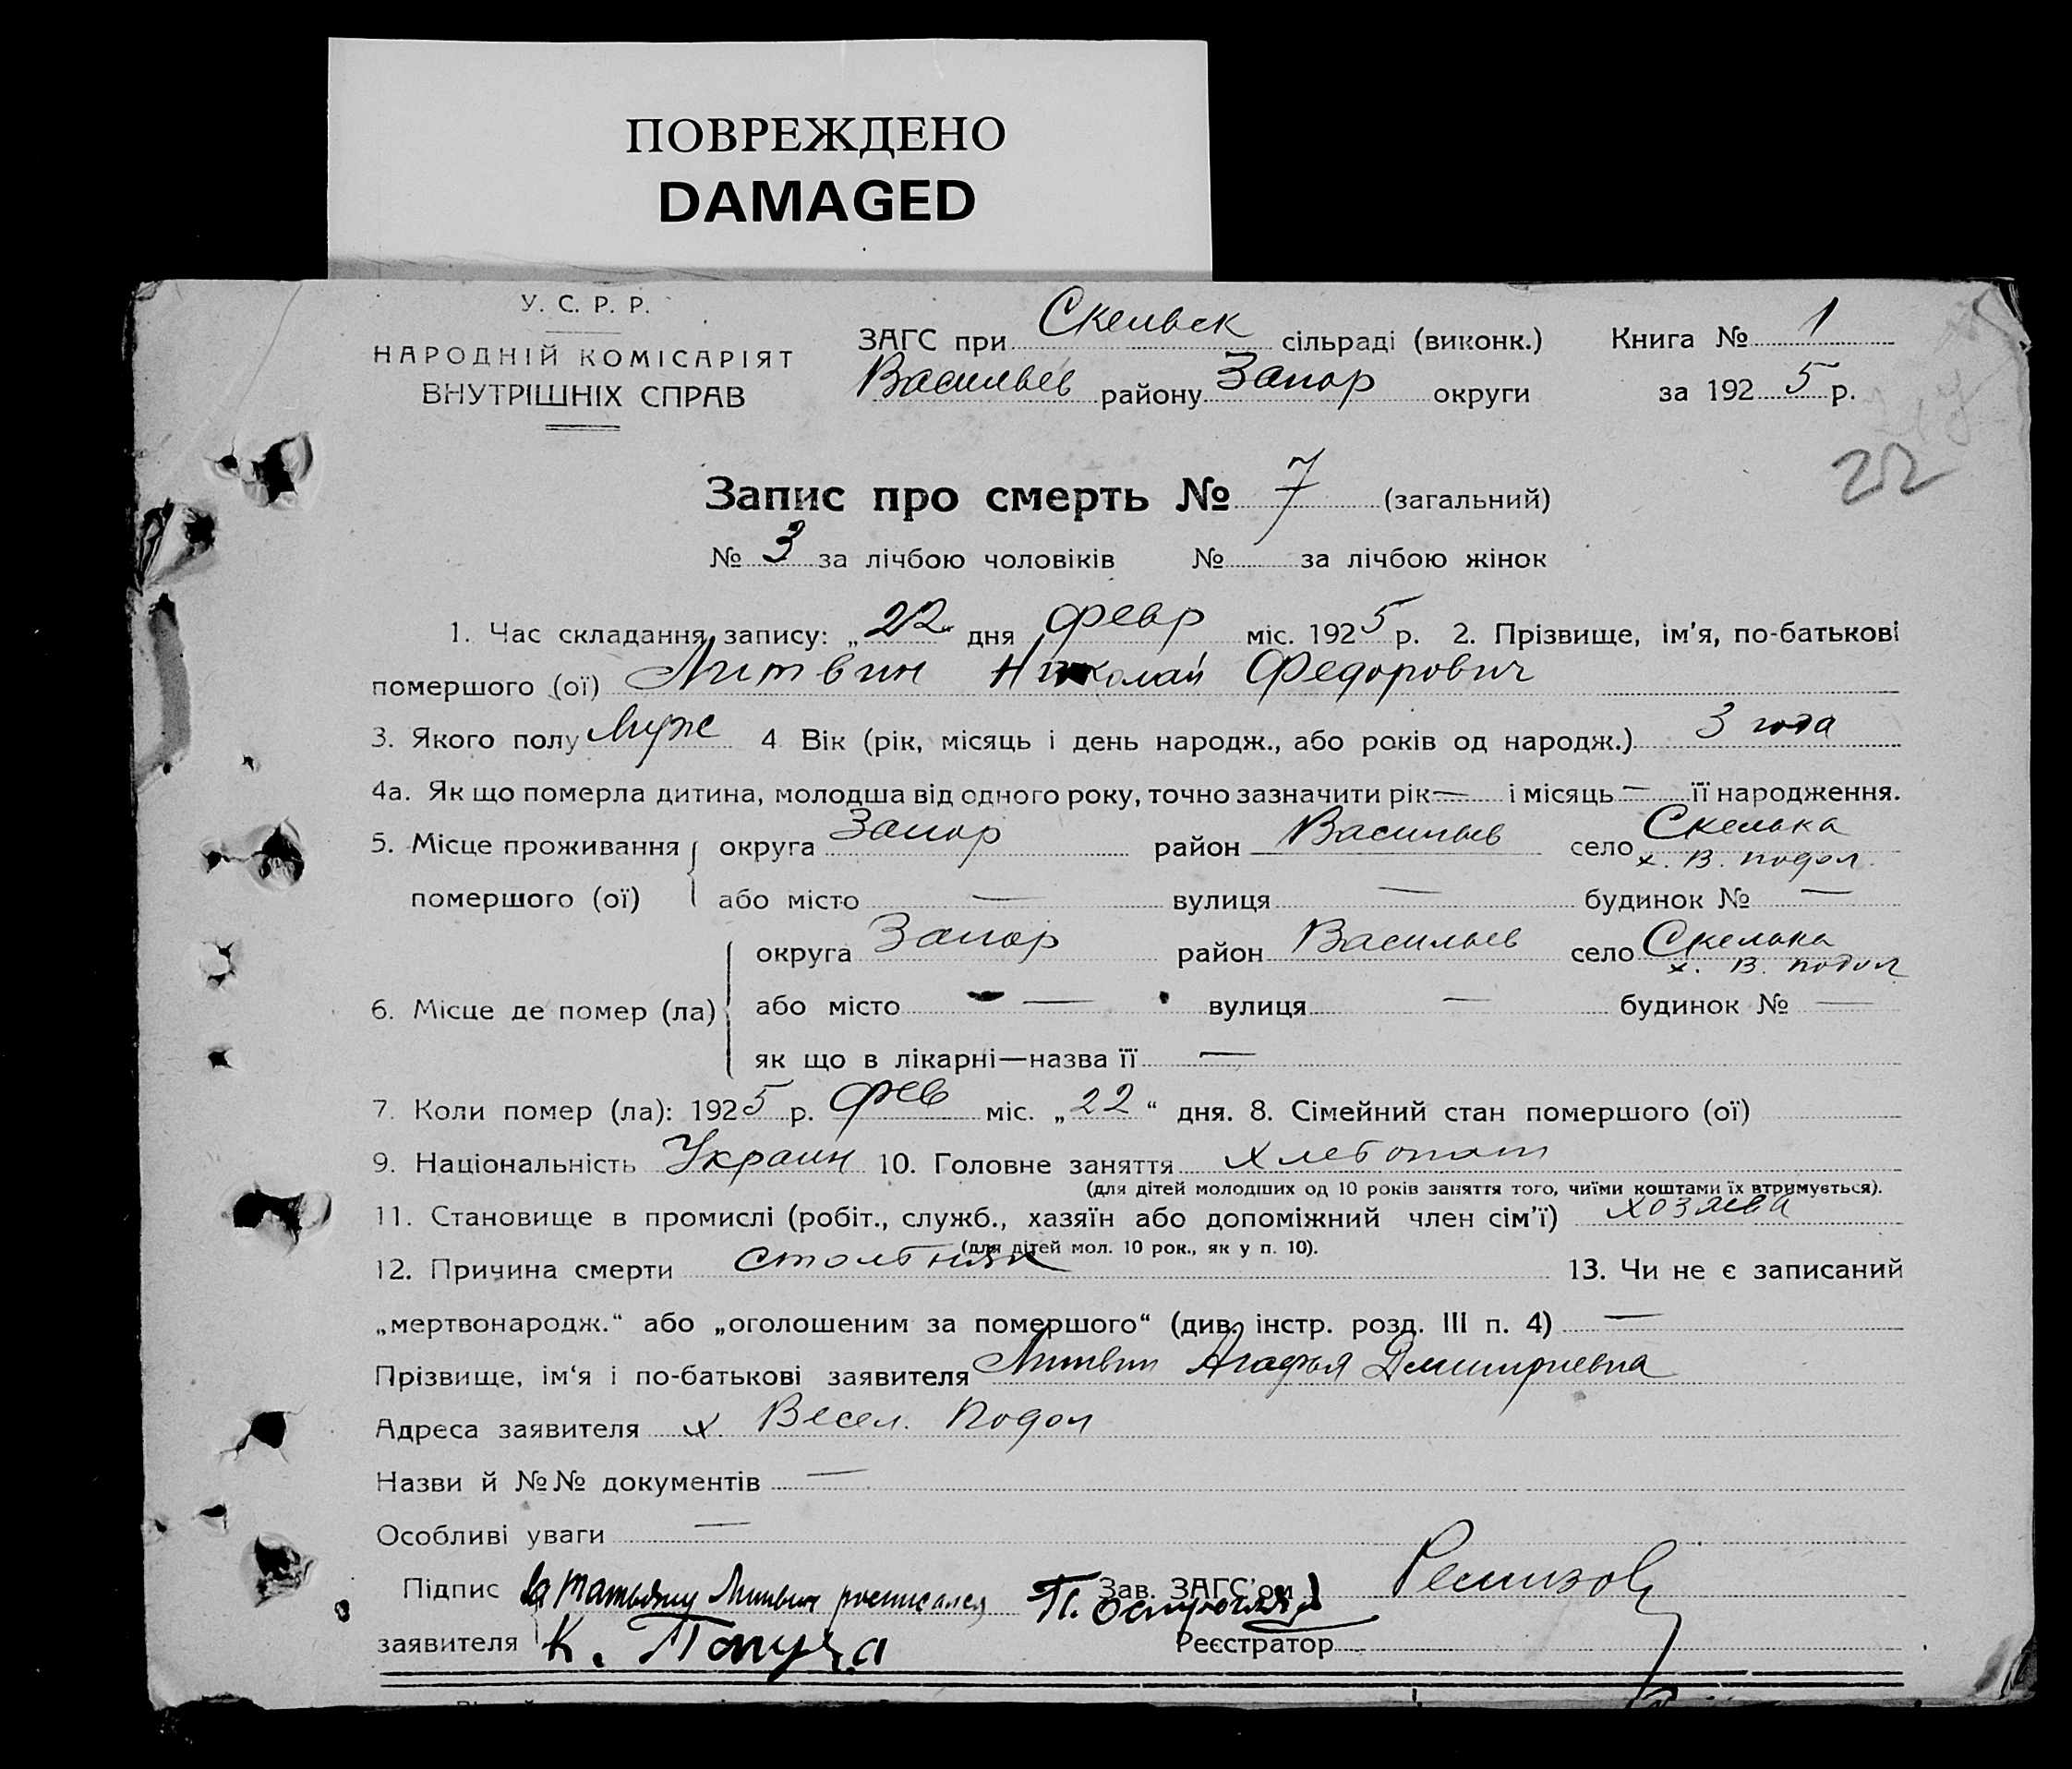 ПОВРЕЖДЕНО
DAMAGED
У. С. Р. Р.
НАРОДНІЙ КОМІСАРІЯТ
ВНУТРІШНІХ СПРАВ
ЗАГС при Скельек сільраді (виконк.)
Васильев району Запор округи
Книга № 1
за 1925 р.
22
Запис про смерть № 7 (загальний)
№ 3 за лічбою чоловіків № за лічбою жінок
1. Час складання запису: „22 дня февр міс. 1925 р. 2. Прізвище, ім'я, по-батькові
помершого (ої) Литвин Николай Федорович
3. Якого полу Муж 4 Вік (рік, місяць і день народж., або років од народж.) 3 года
4а. Як що померла дитина, молодша від одного року, точно зазначити рік — і місяць — її народження.
5. Місце проживання округа Запор район Васильев село Скелька
х. В. подол.
помершого (ої) або місто — вулиця — будинок № —
округа Запор район Васильев село Скелька
х. В. подол
6. Місце де помер (ла) або місто — вулиця — будинок № —
як що в лікарні—назва її —
7. Коли помер (ла): 1925 р. фев міс. „22“ дня. 8. Сімейний стан помершого (ої)
9. Національність Украин 10. Головне заняття хлебопаш
(для дітей молодших од 10 років заняття того, чиїми коштами їх втримується).
11. Становище в промислі (робіт., служб., хазяїн або допоміжний член сім'ї) хозяева
(для дітей мол. 10 рок., як у п. 10).
12. Причина смерти столбняк 13. Чи не є записаний
„мертвонародж.“ або „оголошеним за помершого“ (див. інстр. розд. III п. 4) —
Прізвище, ім'я і по-батькові заявителя Литвин Агафья Дмитриевна
Адреса заявителя х. Весел. Подол
Назви й №№ документів —
Особливі уваги —
Підпис за Татьяну Литвин росписался П. Зав. ЗАГС'ом Ремизов
заявителя К. Реєстратор